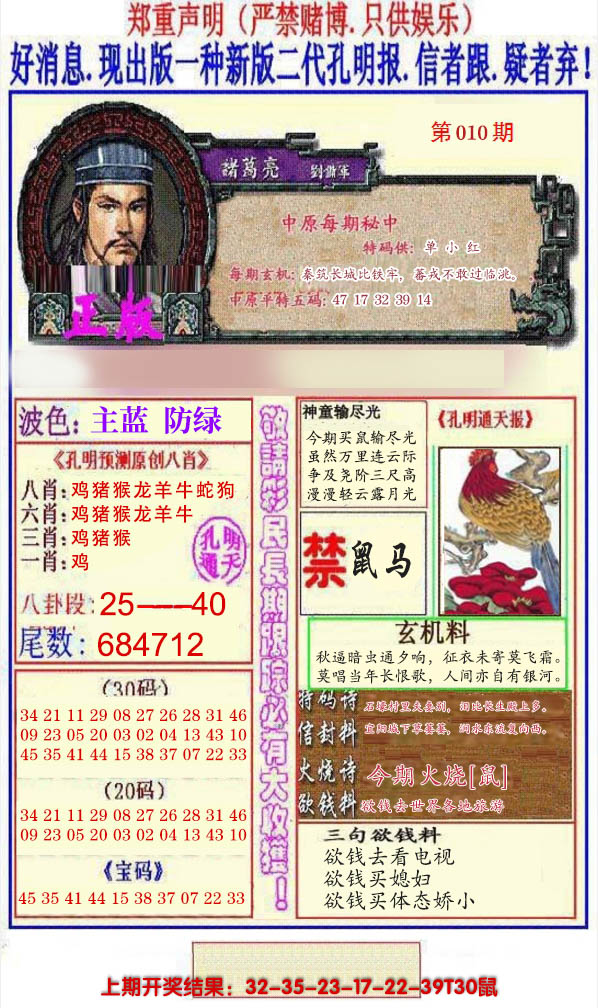 郑重声明（严禁赌博.只供娱乐）
好消息.现出版一种新版二代孔明报.信者跟.疑者弃！
第010期
諸葛亮
中原每期秘中
特码供：单小红
每期玄机：秦筑长城比铁牢，蕃戎不敢过临洮。
中原平特五码：47 17 32 39 14
正版
波色：主蓝 防绿
《孔明预测原创八肖》
八肖：鸡猪猴龙羊牛蛇狗
六肖：鸡猪猴龙羊牛
三肖：鸡猪猴
一肖：鸡
孔明
通天
八卦段：25——40
尾数：684712
（30码）
34 21 11 29 08 27 26 28 31 46
09 23 05 20 03 02 04 13 43 10
45 35 41 44 15 38 37 07 22 33
（20码）
34 21 11 29 08 27 26 28 31 46
09 23 05 20 03 02 04 13 43 10
《宝码》
45 35 41 44 15 38 37 07 22 33
敬請彩民長期跟踪必有大收獲！
神童输尽光
今期买鼠输尽光
虽然万里连云际
争及尧阶三尺高
漫漫轻云露月光
《孔明通天报》
禁鼠马
玄机料
秋逼暗虫通夕响，征衣未寄莫飞霜。
莫唱当年长恨歌，人间亦自有银河。
特码诗
石壕村里夫妻别，泪比长生殿上多。
信封料
宜阳城下草萋萋，涧水东流复向西。
火烧诗
今期火烧[鼠]
欲钱料
欲钱去世界各地旅游
三句欲钱料
欲钱去看电视
欲钱买媳妇
欲钱买体态娇小
上期开奖结果：32-35-23-17-22-39T30鼠